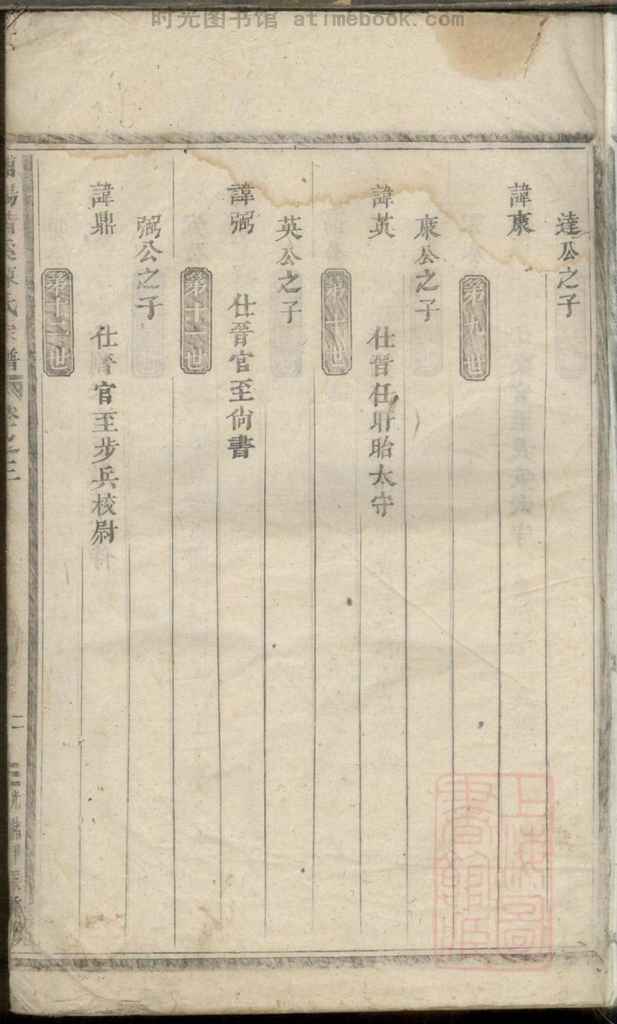 时光图书馆 atimebook.com
達公之子
諱康
第九世
康公之子
諱英 仕晉任盱眙太守
第十世
英公之子
諱弼 仕晉官至尙書
第十一世
弼公之子
諱鼎 仕晉官至步兵校尉
第十二世
氏宗譜 卷之三